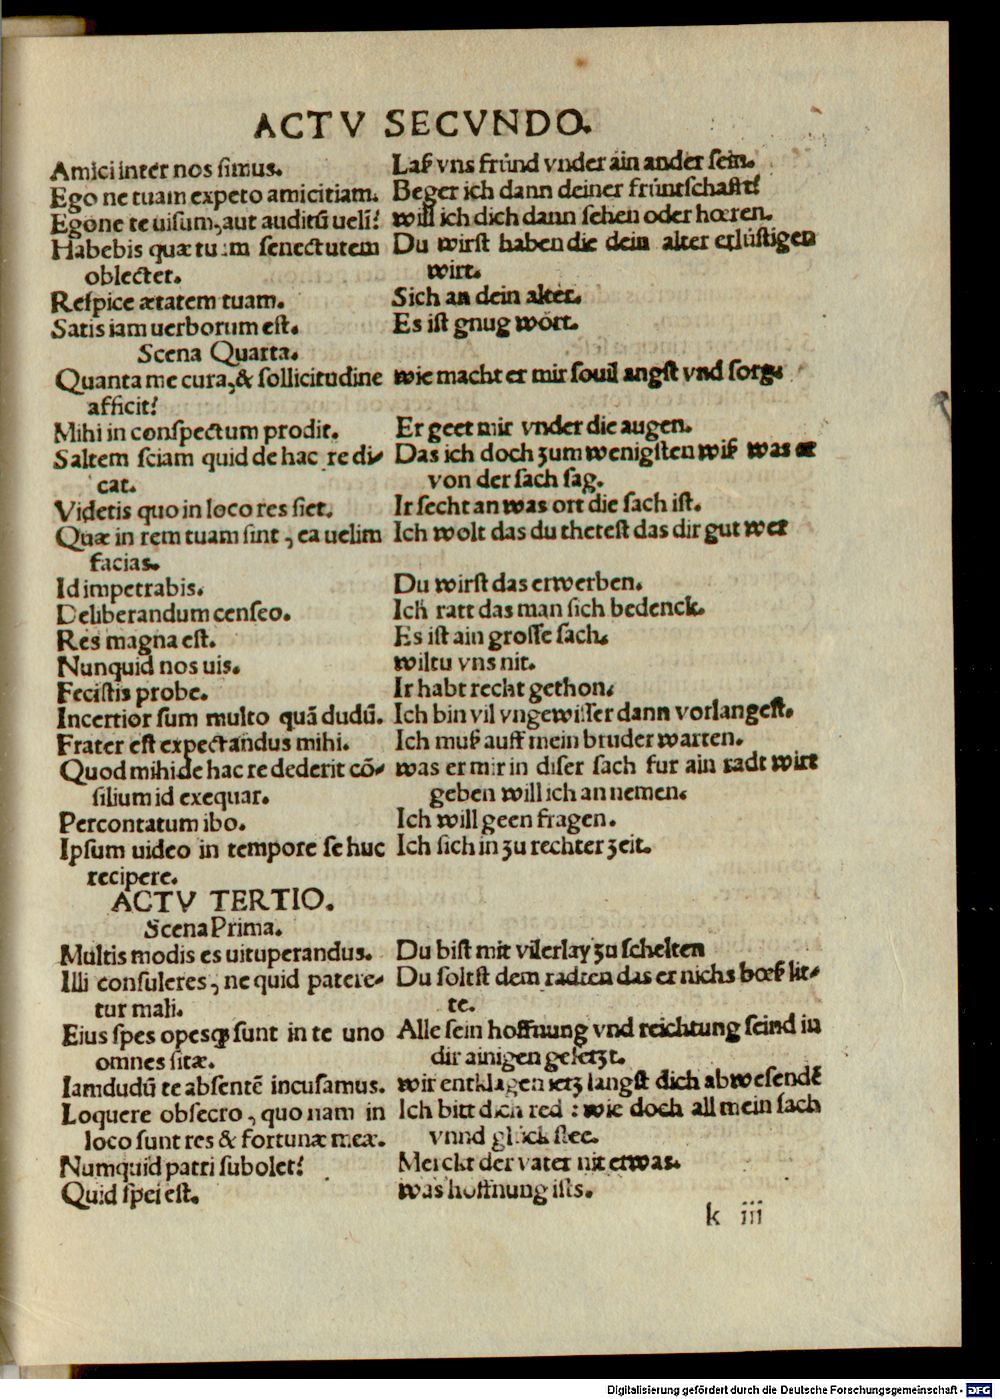 ACTV SECVNDO.
Amici inter nos simus. Laß vns fründ vnder ain ander sein.
Ego ne tuam expeto amicitiam. Beger ich dann deiner früntschafft?
Egone te uisum, aut auditū ueli? will ich dich dann sehen oder hœren.
Habebis quæ tuam senectutem Du wirst haben die dein alter erlüstigen
oblectet. wirt.
Respice ætatem tuam. Sich an dein alter.
Satis iam uerborum est. Es ist gnug wört.
Scena Quarta.
Quanta me cura, & sollicitudine wie macht er mir souil angst vnd sorg.
afficit?
Mihi in conspectum prodit. Er geet mir vnder die augen.
Saltem sciam quid de hac re di- Das ich doch zum wenigsten wiß was er
cat. von der sach sag.
Videtis quo in loco res siet. Ir secht an was ort die sach ist.
Quæ in rem tuam sint, ea uelim Ich wolt das du thetest das dir gut wer
facias.
Id impetrabis. Du wirst das erwerben.
Deliberandum censeo. Ich ratt das man sich bedenck.
Res magna est. Es ist ain grosse sach.
Nunquid nos uis. wiltu vns nit.
Fecistis probe. Ir habt recht gethon.
Incertior sum multo quā dudū. Ich bin vil vngewisser dann vorlangest.
Frater est expectandus mihi. Ich muß auff mein bruder warten.
Quod mihi de hac re dederit cō- was er mir in diser sach fur ain radt wirt
silium id exequar. geben will ich an nemen.
Percontatum ibo. Ich will geen fragen.
Ipsum uideo in tempore se huc Ich sich in zu rechter zeit.
recipere.
ACTV TERTIO.
Scena Prima.
Multis modis es uituperandus. Du bist mit vilerlay zu schelten
Illi consuleres, ne quid patere- Du soltst dem radten das er nichs bœß lit-
tur mali. te.
Eius spes opesq; sunt in te uno Alle sein hoffnung vnd reichtung seind in
omnes sitæ. dir ainigen gesetzt.
Iamdudū te absentē incusamus. wir entklagen ietz langst dich abwesendē
Loquere obsecro, quo nam in Ich bitt dich red : wie doch all mein sach
loco sunt res & fortunæ meæ. vnnd glück stee.
Numquid patri subolet? Merckt der vater nit etwas.
Quid spei est. was hoffnung ists.
k iii
Digitalisierung gefördert durch die Deutsche Forschungsgemeinschaft - DFG